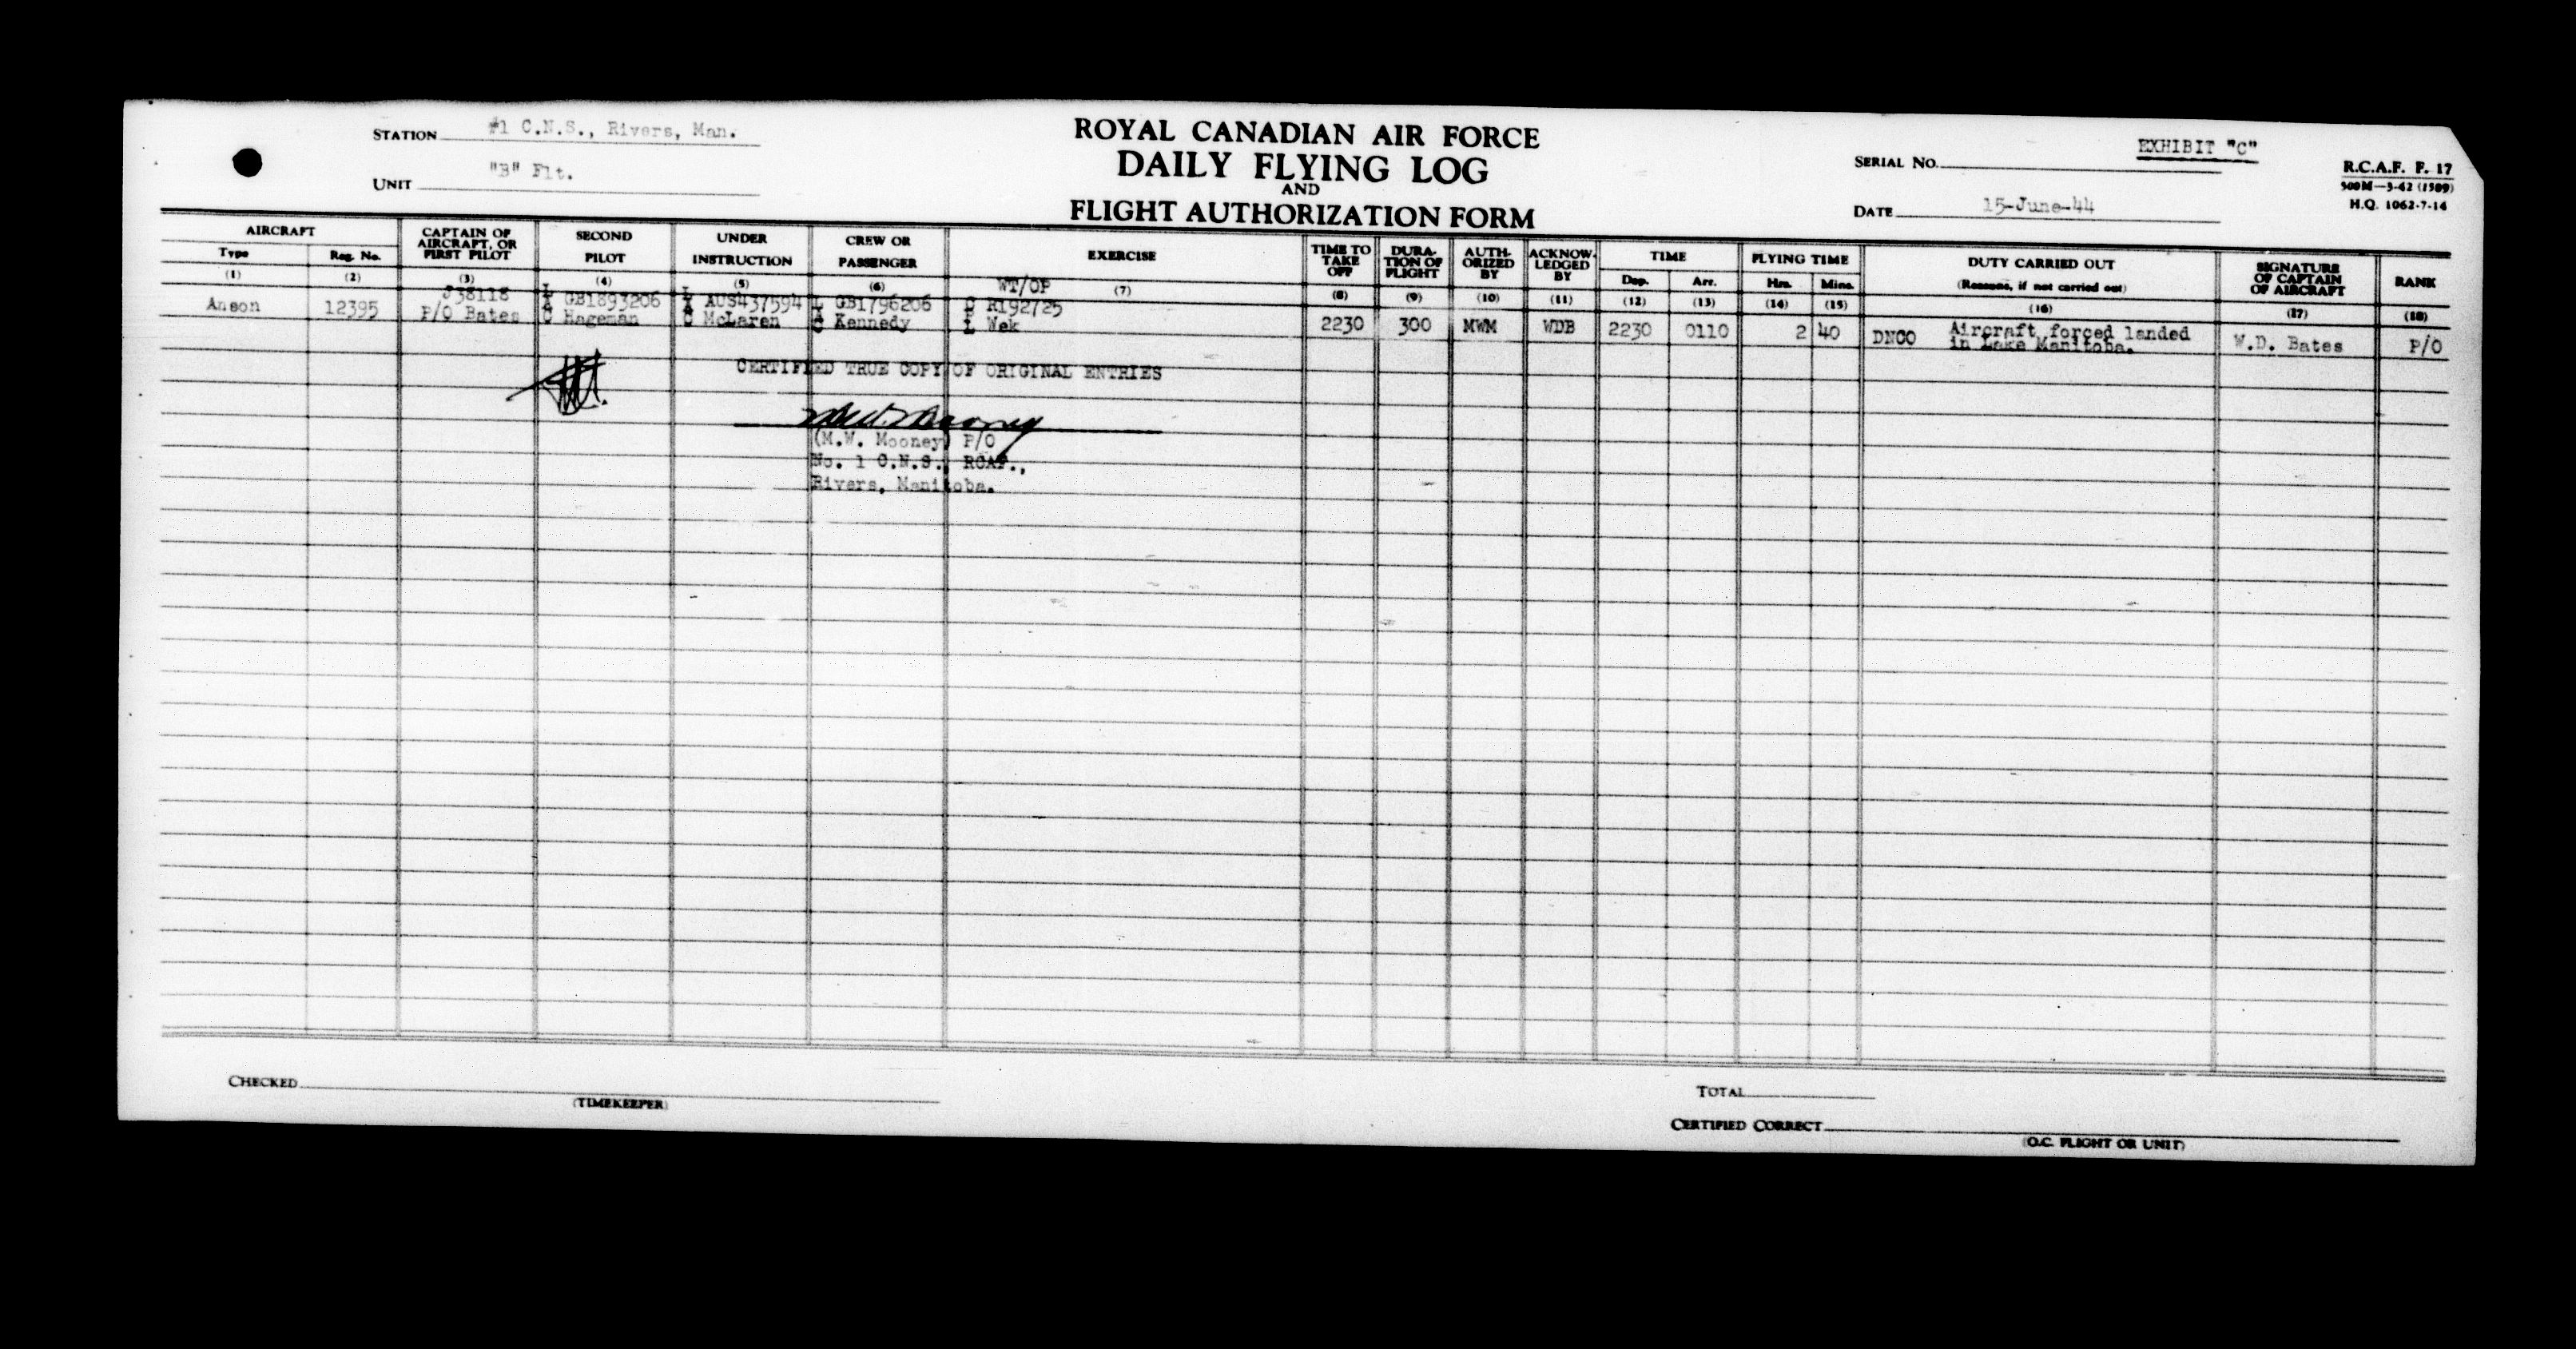 STATION #1 C.N.S., Rivers, Man.
UNIT "B" Flt.
ROYAL CANADIAN AIR FORCE
DAILY FLYING LOG
AND
FLIGHT AUTHORIZATION FORM
EXHIBIT "C"
SERIAL NO.
DATE 15-June-44
R.C.A.F. F. 17
500M—3-42 (1509)
H.Q. 1062-7-14
AIRCRAFT
Type
(1)
Reg. No.
(2)
CAPTAIN OF
AIRCRAFT, OR
FIRST PILOT
(3)
SECOND
PILOT
(4)
UNDER
INSTRUCTION
(5)
CREW OR
PASSENGER
(6)
EXERCISE
(7)
TIME TO
TAKE
OFF
(8)
DURA-
TION OF
FLIGHT
(9)
AUTH-
ORIZED
BY
(10)
ACKNOW-
LEDGED
BY
(11)
TIME
Dep.
(12)
Arr.
(13)
FLYING TIME
Hrs.
(14)
Mins.
(15)
DUTY CARRIED OUT
(Reasons, if not carried out)
(16)
SIGNATURE
OF CAPTAIN
OF AIRCRAFT
(17)
RANK
(18)
Anson
12395
J38118
P/O Bates
L
A GB1893206
C Hageman
L
A AUS437594
C McLaren
L GB1796206
A
C Kennedy
WT/OP
C R192725
P
L Wek
2230
300
MWM
WDB
2230
0110
2
40
DNCO
Aircraft forced landed
in Lake Manitoba.
W.D. Bates
P/O
CERTIFIED TRUE COPY OF ORIGINAL ENTRIES
(M.W. Mooney) P/O
No. 1 C.N.S., RCAF.,
Rivers, Manitoba.
CHECKED
(TIMEKEEPER)
TOTAL
CERTIFIED CORRECT
(O.C. FLIGHT OR UNIT)